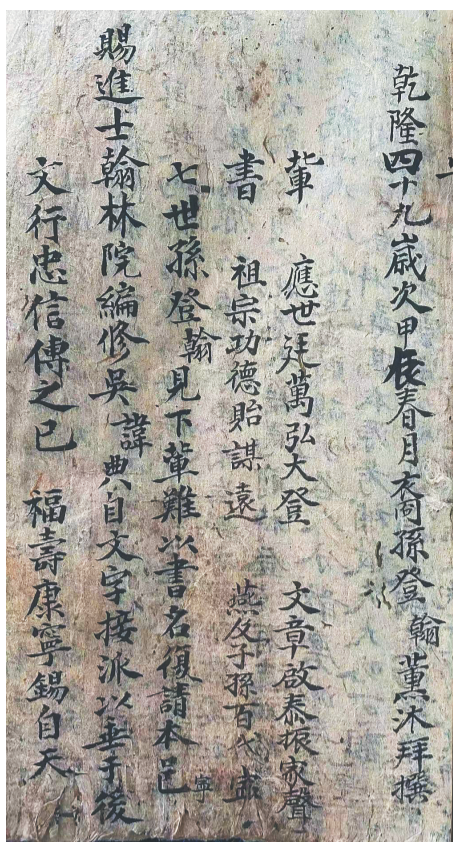 乾隆四十九歲次甲辰春月裔孫登翰薰沐拜撰
輩 應世廷萬弘大登 文章啟泰振家聲
書 祖宗功德貽謀遠 燕及子孫百代盛
七世孫登翰見下輩難以書名復請本邑
賜進士翰林院編修吳諱典自文字接派以垂于後
文行忠信傳之已 福壽康寧錫自天